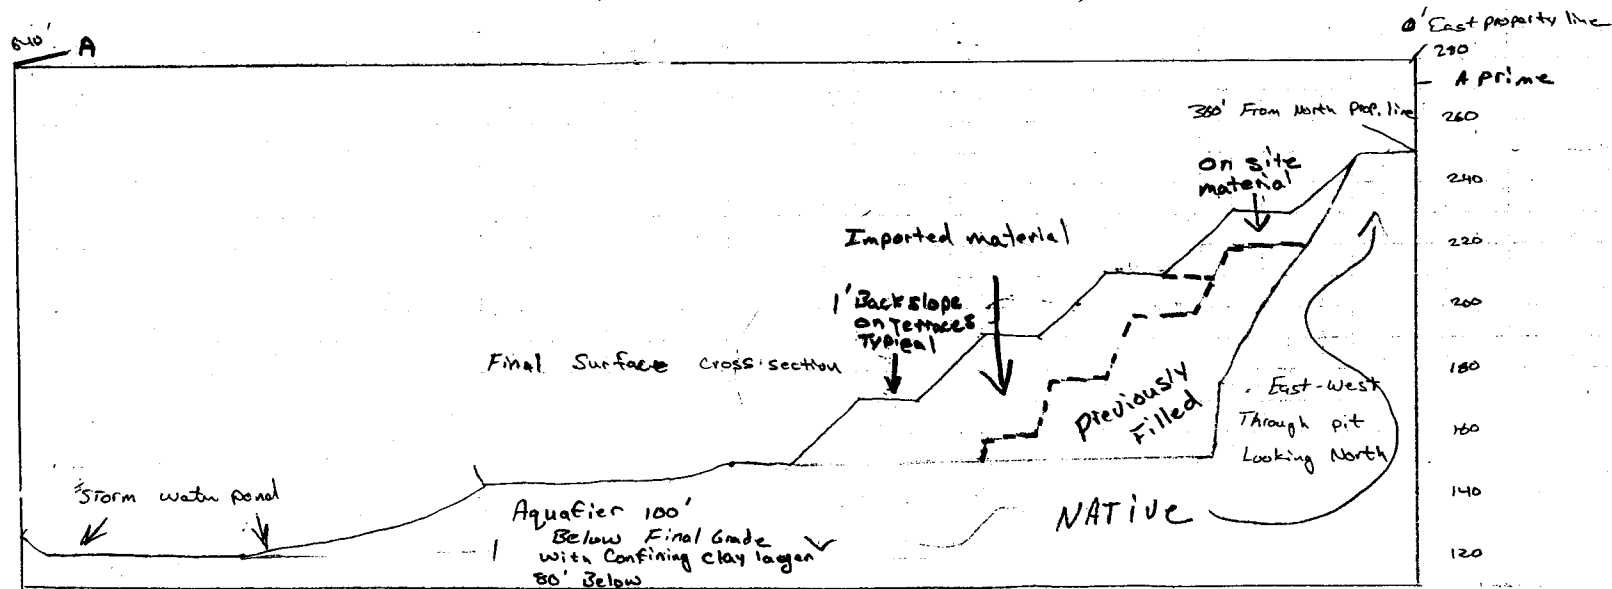 640'
A
0' East property line
280
A prime
360' From North Prop. line
260
On site
material
240
Imported material
220
1' Backslope
on Terraces
Typical
200
Final Surface cross-section
180
Previously
Filled
East-West
Through pit
Looking North
160
Storm water pond
140
Aquafier 100'
Below Final Grade
with Confining clay layer
80' Below
NATIVE
120